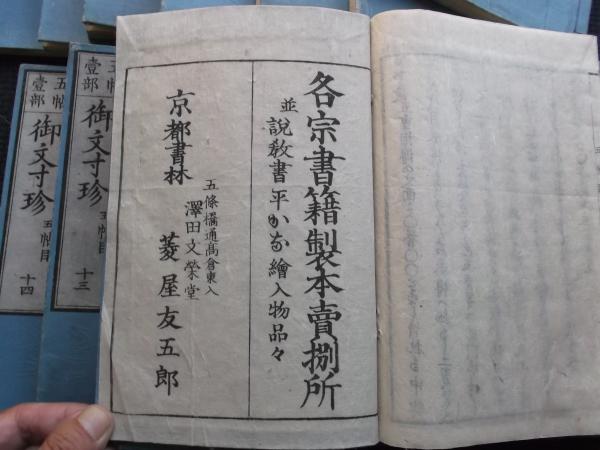 各宗書籍製本賣捌所
並説教書平かな繪入物品々
京都書林
五條橋通高倉東入
澤田文榮堂
菱屋友五郎
五帖
壹部
御文寸珍
五帖目
十三
五帖
壹部
御文寸珍
五帖目
十四